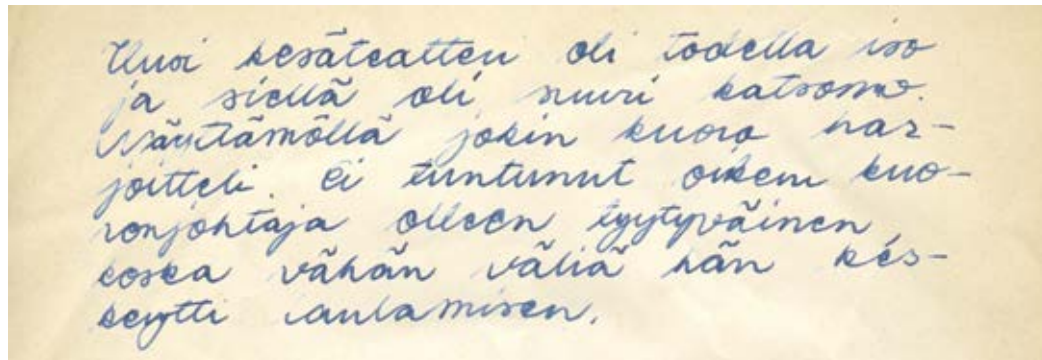 Uusi kesäteatteri oli todella iso
ja siellä oli suuri katsomo.
Näyttämöllä jokin kuoro har-
joitteli. Ei tuntunut oikein kuo-
ronjohtaja olleen tyytyväinen,
koska vähän väliä hän kes-
keytti laulamisen.